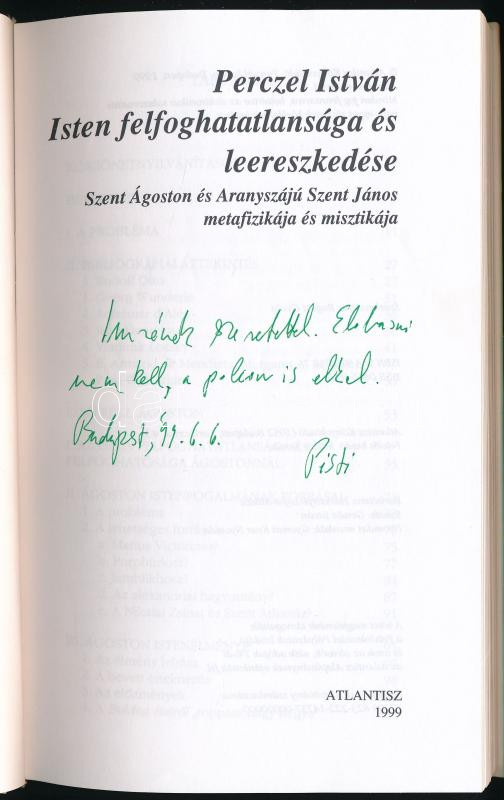 Perczel István
Isten felfoghatatlansága és
leereszkedése
Szent Ágoston és Aranyszájú Szent János
metafizikája és misztikája
Imrének szeretettel. Elolvasni
nem kell, a polcon is elkel.
Budapest, 99. 6. 6.
Pisti
ATLANTISZ
1999